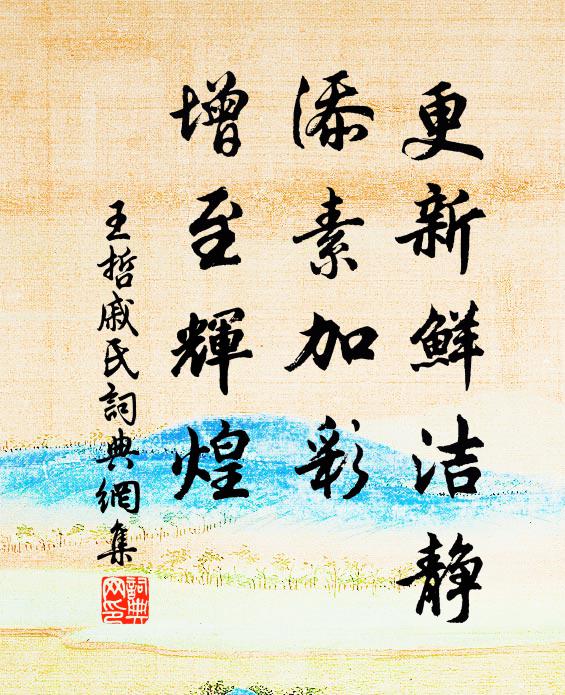 更新鲜洁静
添素加彩
增至輝煌
王哲戚氏詞典網集
詞典网印